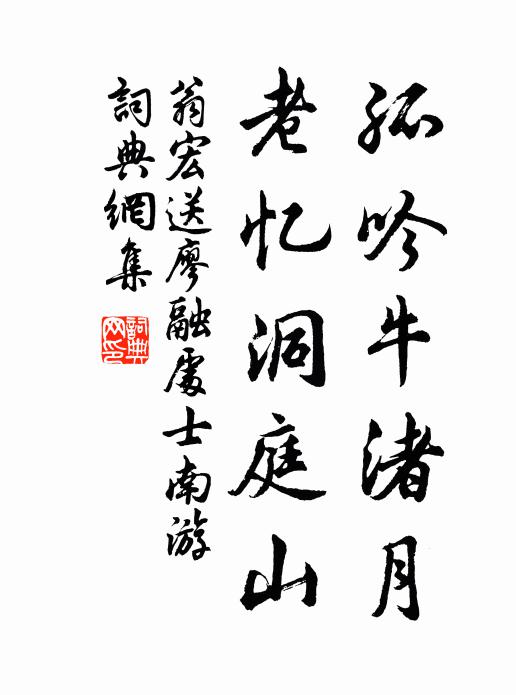 孤吟牛渚月
老忆洞庭山
翁宏送廖融處士南游
詞典網集
詞典网印